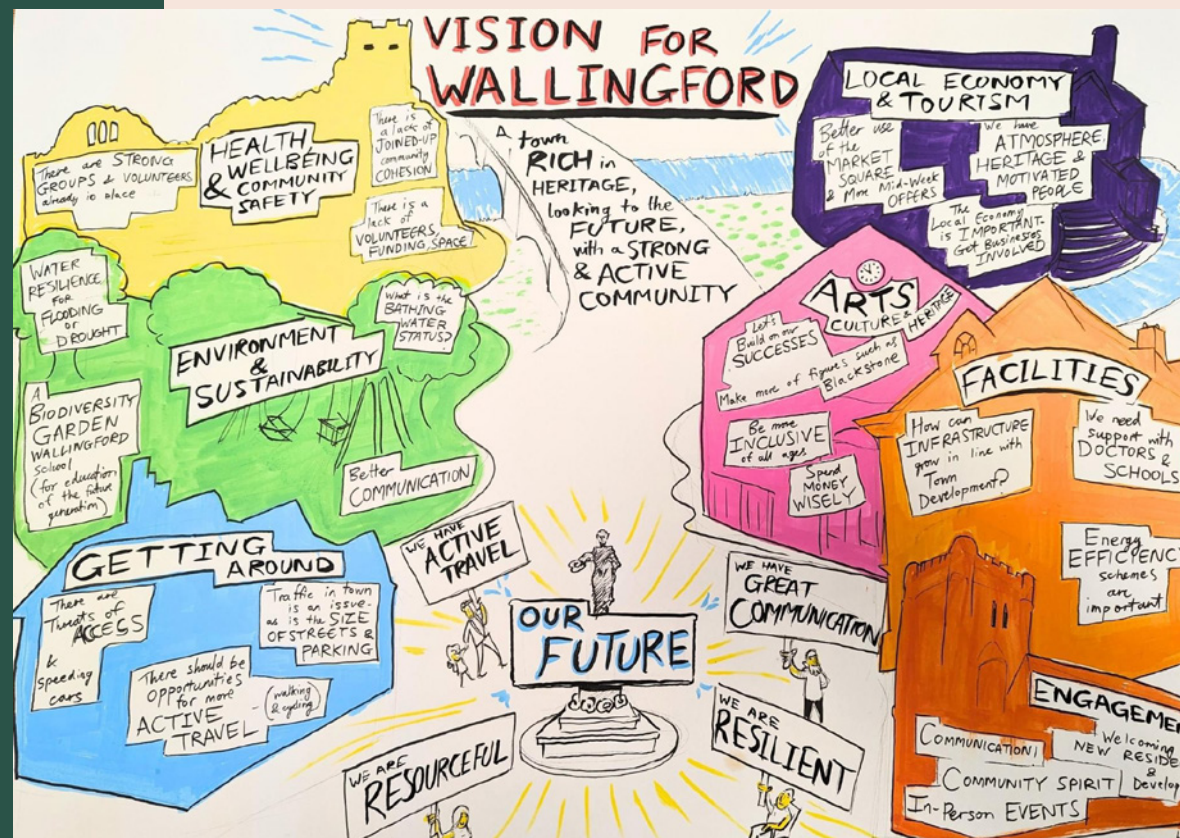 VISION FOR
WALLINGFORD
A town
RICH in
HERITAGE,
looking to the
FUTURE,
with a STRONG
& ACTIVE
COMMUNITY
HEALTH,
WELLBEING
& COMMUNITY
SAFETY
There are STRONG
GROUPS & VOLUNTEERS
already in place
There is
a lack of
JOINED-UP
community
COHESION
There is a
lack of
VOLUNTEERS,
FUNDING, SPACE
ENVIRONMENT
&
SUSTAINABILITY
WATER
RESILIENCE
FOR
FLOODING
or
DROUGHT
What is the
BATHING
WATER
STATUS?
A
BIODIVERSITY
GARDEN
WALLINGFORD
School
(for education
of the future
generation)
Better
COMMUNICATION
GETTING
AROUND
There are
Threats of
ACCESS
&
speeding
cars
Traffic in town
is an issue-
as is the SIZE
OF STREETS &
PARKING
There should be
opportunities
for more
ACTIVE
TRAVEL
- (walking
& cycling)
LOCAL ECONOMY
& TOURISM
Better use
of the
MARKET
SQUARE
& More Mid-Week
OFFERS
We have
ATMOSPHERE,
HERITAGE &
MOTIVATED
PEOPLE
The
Local Economy
is IMPORTANT-
Get Businesses
INVOLVED
ARTS
CULTURE &
HERITAGE
Let's
Build on our
SUCCESSES
Make more of figures such as
Blackstone
Be more
INCLUSIVE
of all ages
Spend
MONEY
WISELY
FACILITIES
How can
INFRASTRUCTURE
grow in line with
Town
Development?
We need
support with
DOCTORS &
SCHOOLS
Energy
EFFICIENC
schemes
are
important
ENGAGEME
COMMUNICATION!
Welcoming
NEW RESIDE
&
Develop
COMMUNITY SPIRIT
In-Person EVENTS
WE HAVE
ACTIVE
TRAVEL
WE HAVE
GREAT
COMMUNICATION
OUR
FUTURE
WE ARE
RESOURCEFUL
WE ARE
RESILIENT